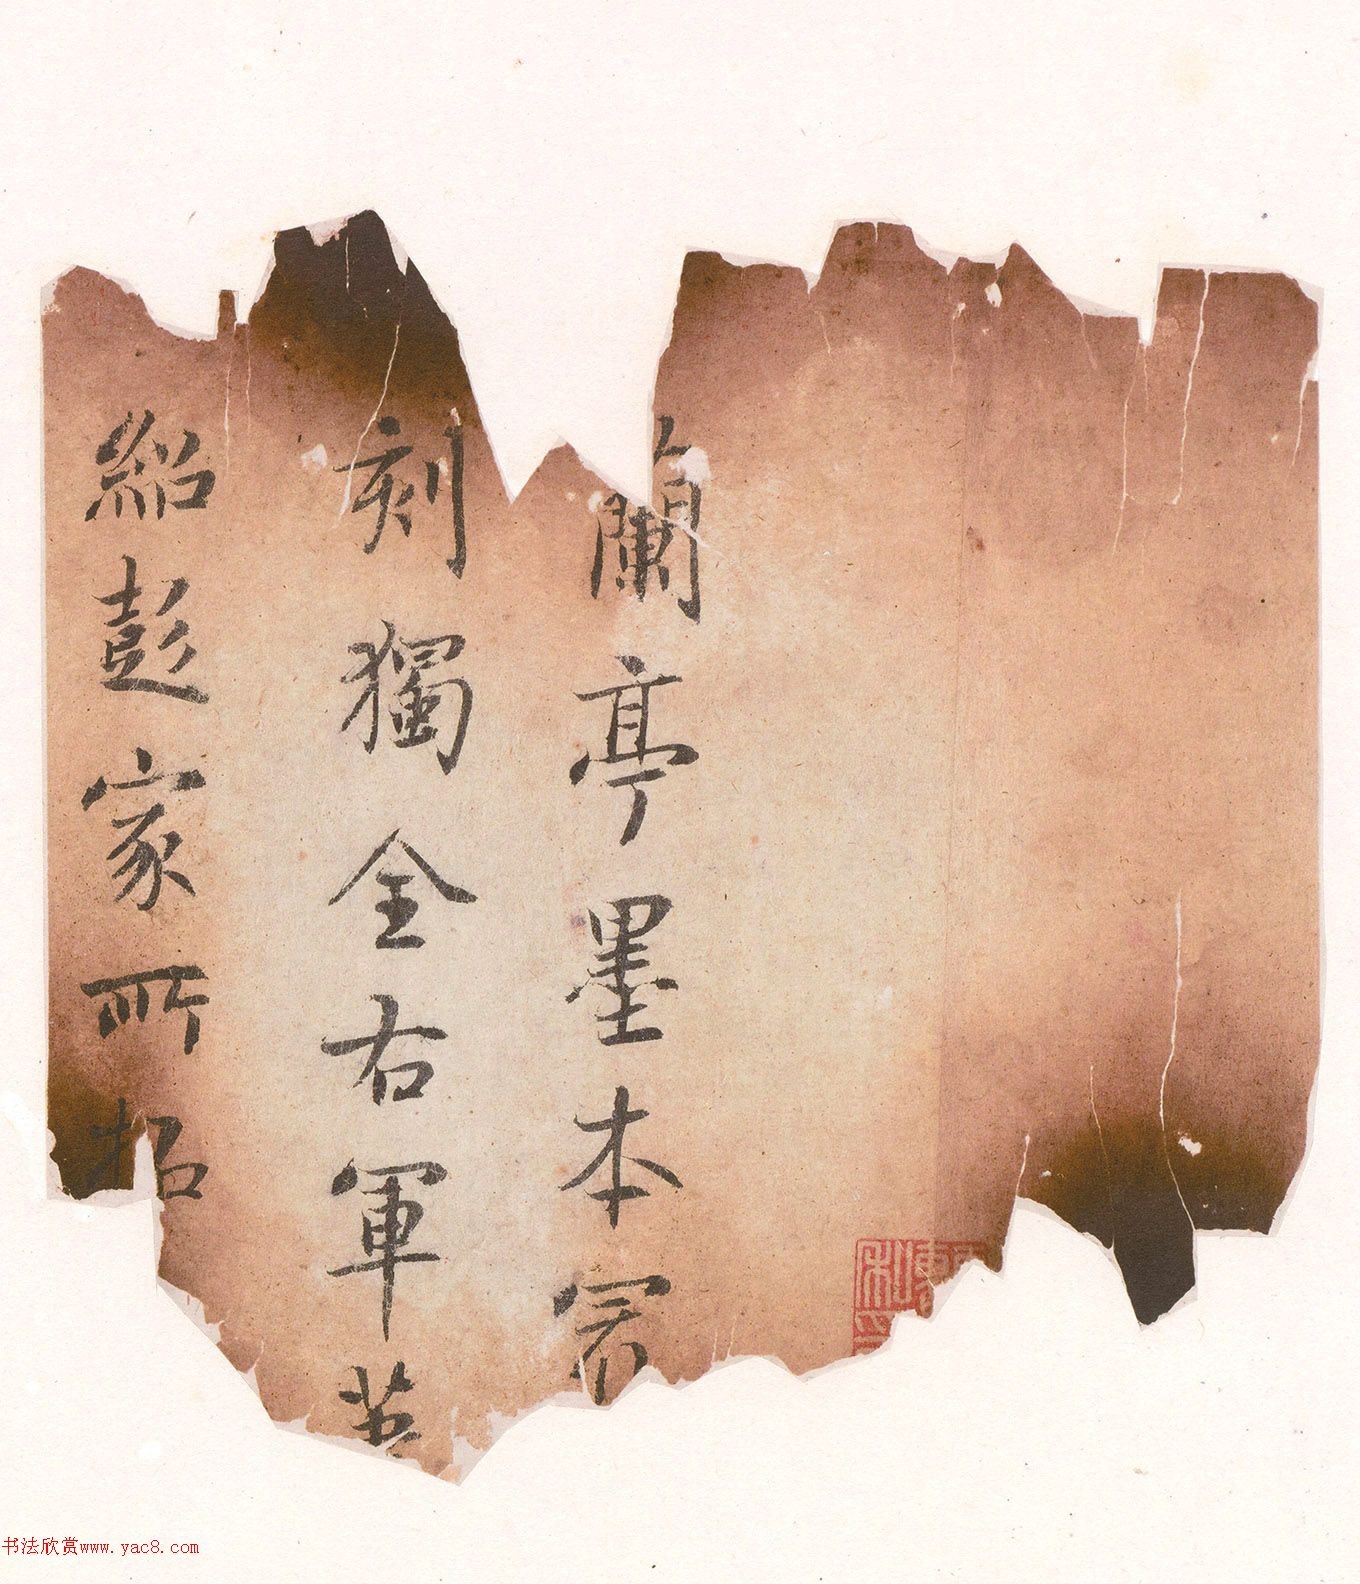 蘭亭墨本最
刻獨全右軍
紹彭家所拓
书法欣赏www.yac8.com